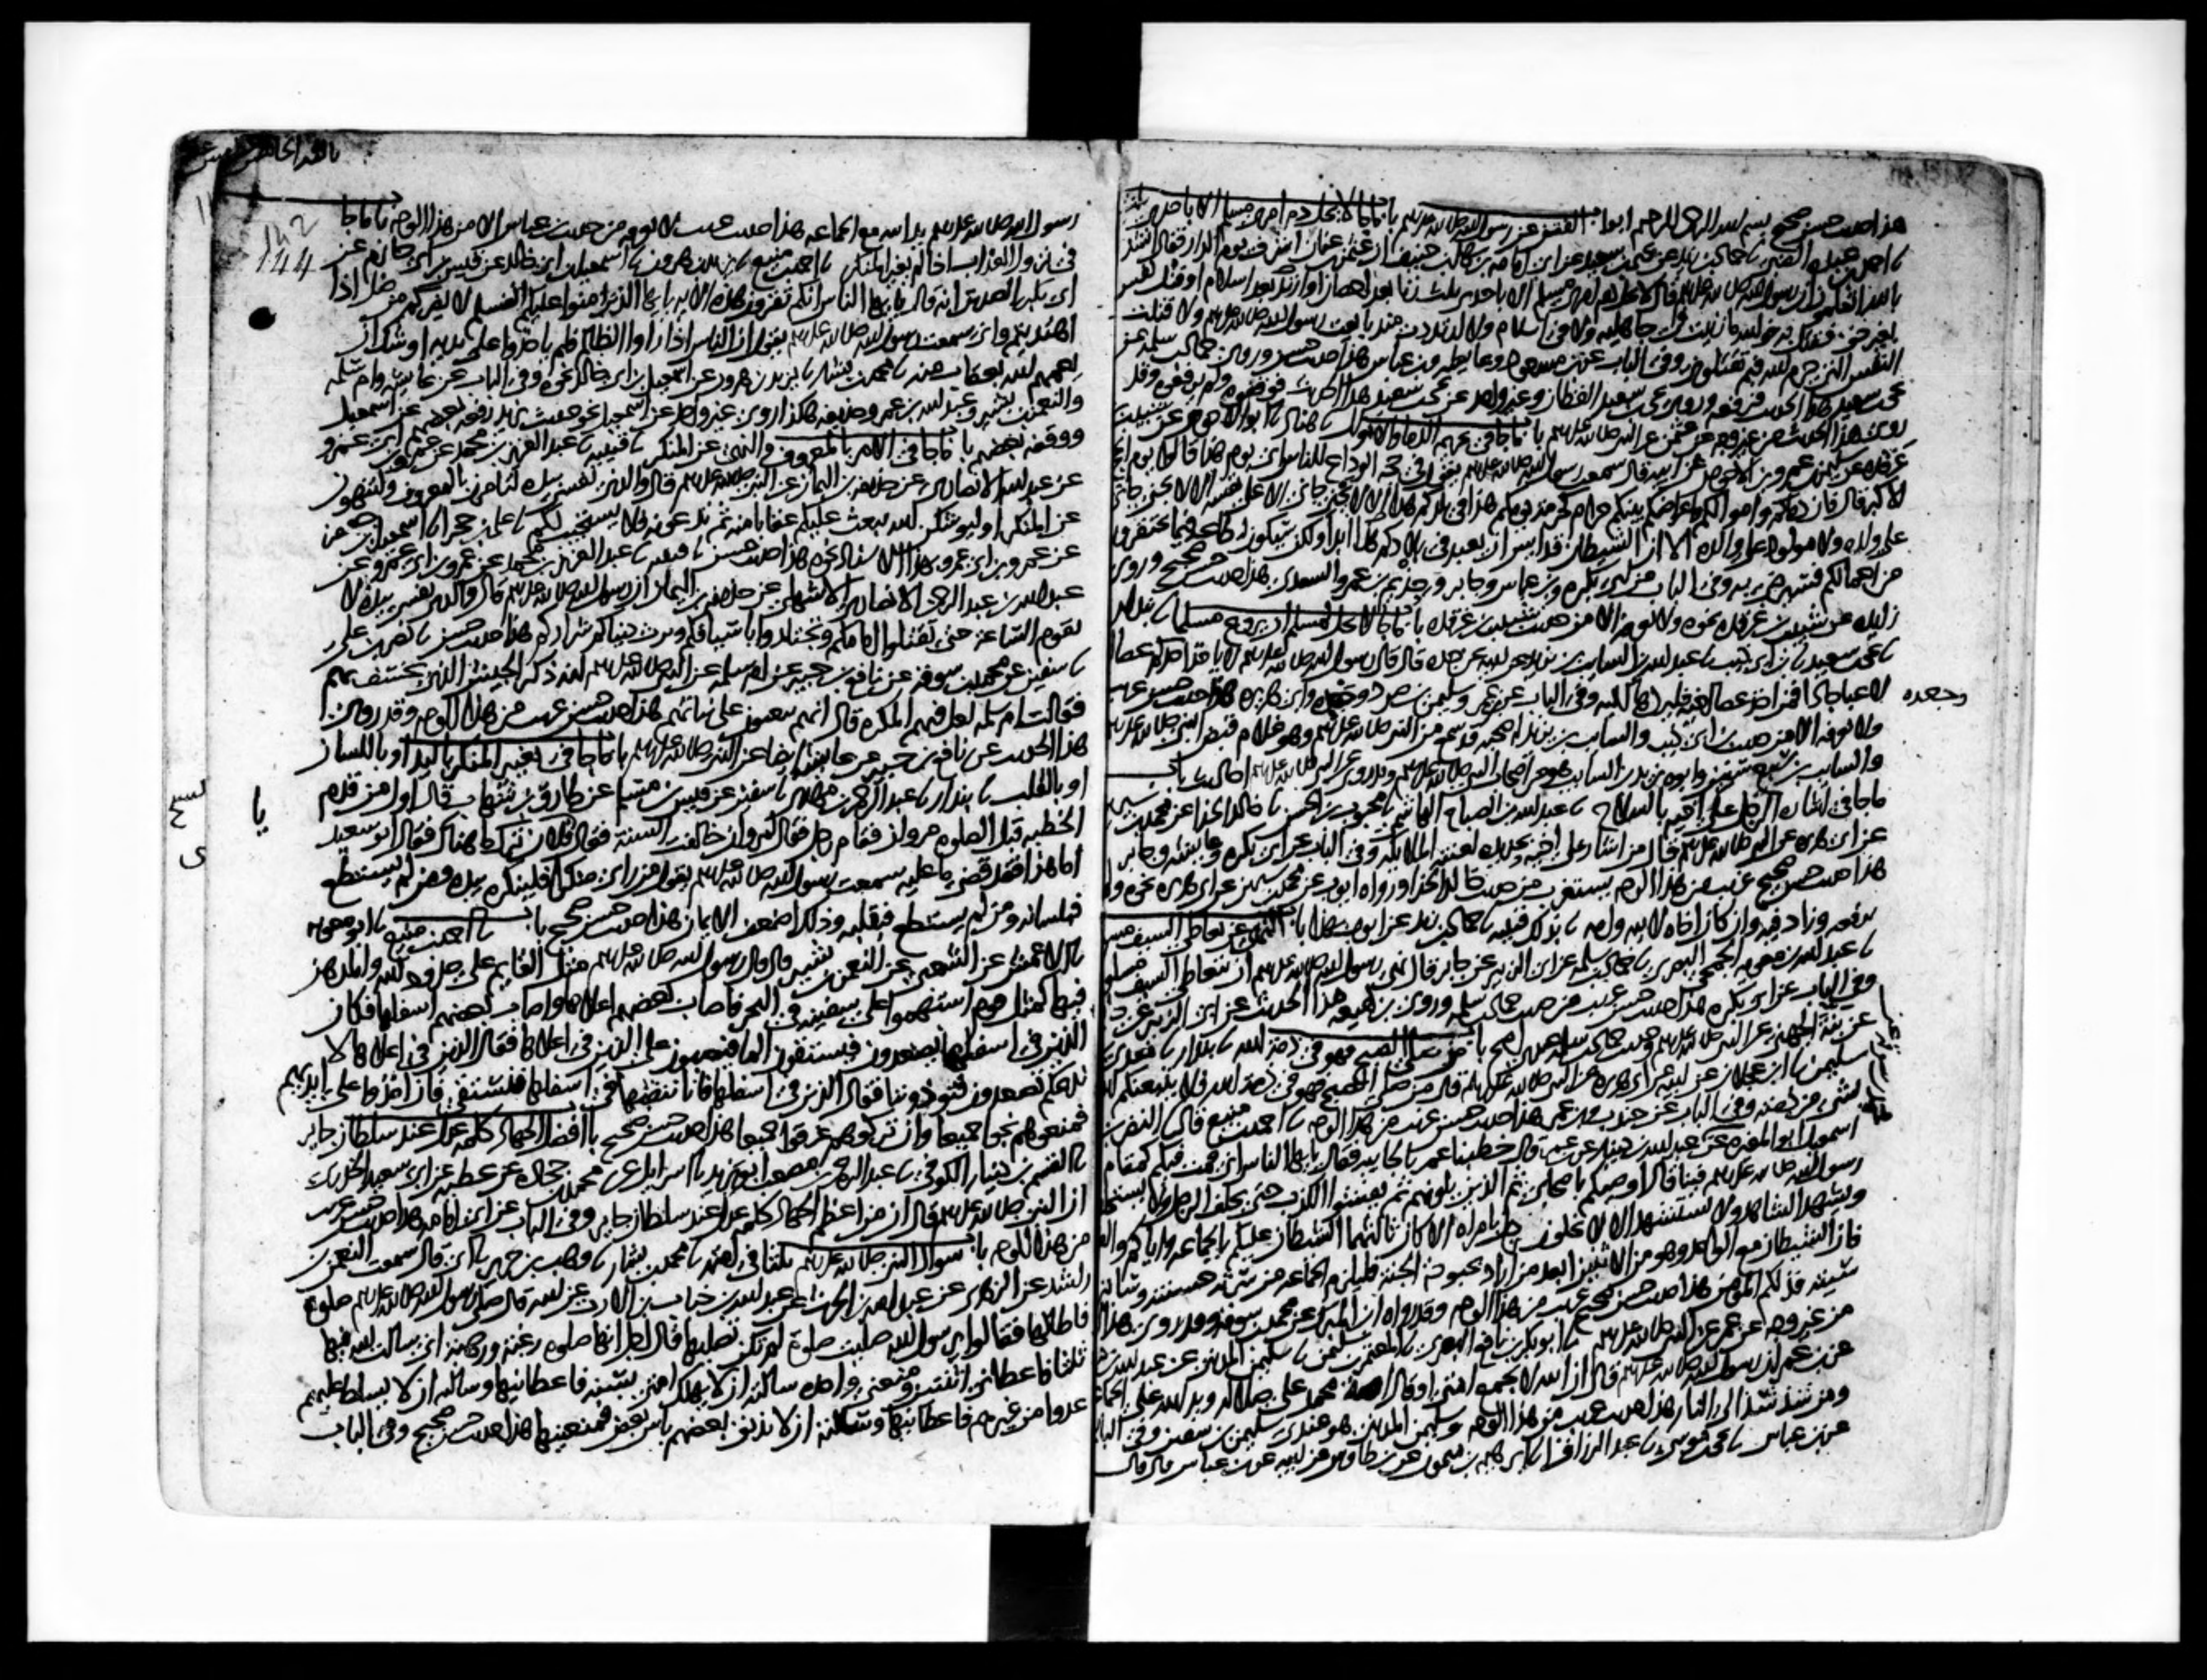 هذا حديث حسن صحيح بسم الله الرحمن الرحيم ابواب الفتن عن رسول الله صلى الله عليه وسلم باب ما جا لا يحل دم امرئ مسلم الا باحدى ثلث
نا احمد بن عبده الضبي نا حماد بن زيد عن يحيى بن سعيد عن ابي امامه بن سهل بن حنيف ان عثمن بن عفان اشرف يوم الدار فقال انشدكم
بالله اتعلمون ان رسول الله صلى الله عليه وسلم قال لا يحل دم امرئ مسلم الا باحدى ثلث زنا بعد احصان او ارتداد بعد اسلام او قتل نفس
بغير حق فقتل به فوالله ما زنيت في جاهليه ولا في اسلام ولا ارتددت منذ بايعت رسول الله صلى الله عليه وسلم ولا قتلت
النفس التي حرم الله فبم تقتلونني وفي الباب عن بن مسعود وعايشه وبن عباس هذا حديث حسن وروى حماد بن سلمه عن
يحيى بن سعيد هذا الحديث فرفعه وروى يحيى بن سعيد القطان وغير واحد عن يحيى بن سعيد هذا الحديث فوقفوه ولم يرفعوه وقد
روي هذا الحديث من غير وجه عن عثمن عن النبي صلى الله عليه وسلم باب ما جا في تحريم الدما والاموال نا هناد نا ابو الاحوص عن شبيب بن
غرقده عن سليمن بن عمرو بن الاحوص عن ابيه قال سمعت رسول الله صلى الله عليه وسلم يقول في حجه الوداع للناس اي يوم هذا قالوا يوم الحج
الاكبر قال فان دماكم واموالكم واعراضكم بينكم حرام كحرمه يومكم هذا في بلدكم هذا الا لا يجني جاني الا على نفسه الا لا يجني جاني
على ولده ولا مولود على والده الا ان الشيطان قد ايس ان يعبد في بلادكم هذا ابدا ولكن ستكون له طاعه فيما تحتقرون
من اعمالكم فسيرضى به وفي الباب عن ابي بكره وبن عباس وجابر وحذيم بن عمرو السعدي هذا حديث حسن صحيح وروى
زايده عن شبيب بن غرقده نحوه ولا نعرفه الا من حديث شبيب بن غرقده باب ما جا لا يحل لمسلم ان يروع مسلما نا بندار
نا يحيى بن سعيد نا بن ابي ذيب نا عبد الله بن السايب بن يزيد عن ابيه عن جده قال قال رسول الله صلى الله عليه وسلم لا ياخذ احدكم عصا اخيه
لاعبا جادا فمن اخذ عصا اخيه فليردها اليه وفي الباب عن بن عمر وسليمن بن صرد وجعده وابي هريره هذا حديث حسن غريب
وجعده
ولا نعرفه الا من حديث بن ابي ذيب والسايب بن يزيد له صحبه قد سمع من النبي صلى الله عليه وسلم وهو غلام قبض النبي صلى الله عليه وسلم
والسايب بن سبع سنين وابوه يزيد بن السايب هو من اصحاب النبي صلى الله عليه وسلم وقد روى عن النبي صلى الله عليه وسلم احاديث باب
ما جا في اشاره الرجل على اخيه بالسلاح نا عبد الله بن الصباح الهاشمي نا محبوب بن الحسن نا خالد الحذا عن محمد بن سيرين
عن ابي هريره عن النبي صلى الله عليه وسلم قال من اشار على اخيه بحديده لعنته الملايكه وفي الباب عن ابي بكره وعايشه وجابر
هذا حديث حسن صحيح غريب من هذا الوجه يستغرب من حديث خالد الحذا ورواه ايوب عن محمد بن سيرين عن ابي هريره نحوه ولم
يرفعه وزاد فيه وان كان اخاه لابيه وامه نا بذلك قتيبه نا حماد بن زيد عن ايوب بهذا باب النهي عن تعاطي السيف مسلولا
نا عبد الله بن معويه الجمحي البصري نا حماد بن سلمه عن ابي الزبير عن جابر قال نهى رسول الله صلى الله عليه وسلم ان يتعاطى السيف مسلولا
وفي الباب عن ابي بكره هذا حديث حسن غريب من حديث حماد بن سلمه وروى بن لهيعه هذا الحديث عن ابي الزبير عن جابر
عن بنه الجهني عن النبي صلى الله عليه وسلم وحديث حماد بن سلمه عندي اصح باب من صلى الصبح فهو في ذمه الله نا بندار نا معدي بن
سليمن نا ابن عجلان عن ابيه عن ابي هريره عن النبي صلى الله عليه وسلم قال من صلى الصبح فهو في ذمه الله فلا يتبعنكم الله
بشي من ذمته وفي الباب عن جندب وبن عمر هذا حديث حسن غريب من هذا الوجه نا احمد بن منيع قال النضر بن
اسمعيل ابو المغيره عن عبد الله بن دينار عن بن عمر قال خطبنا عمر بالجابيه فقال يا ايها الناس اني قمت فيكم كمقام
رسول الله صلى الله عليه وسلم فينا فقال اوصيكم باصحابي ثم الذين يلونهم ثم يفشوا الكذب حتى يحلف الرجل ولا يستحلف
ويشهد الشاهد ولا يستشهد الا لا يخلون رجل بامراه الا كان ثالثهما الشيطان عليكم بالجماعه واياكم والفرقه
فان الشيطان مع الواحد وهو من الاثنين ابعد من اراد بحبوحه الجنه فليلزم الجماعه من سرته حسنته وساته
سيئته فذلكم المومن هذا حديث حسن صحيح غريب من هذا الوجه وقد رواه ابن المبرك عن محمد بن سوقه وقد روي هذا
من غير وجه عن عمر عن النبي صلى الله عليه وسلم نا ابو بكر بن نافع البصري نا المعتمر بن سليمن نا سليمن المدني عن عبد الله بن دينار
عن بن عمر ان رسول الله صلى الله عليه وسلم قال ان الله لا يجمع امتي او قال امه محمد على ضلاله ويد الله على الجماعه
ومن شذ شذ الى النار هذا حديث غريب من هذا الوجه وسليمن المدني هو عندي سليمن بن سفين وفي الباب
عن بن عباس نا يحيى بن موسى نا عبد الرزاق نا ابرهيم بن ميمون عن بن طاوس عن ابيه عن بن عباس قال قال
رسول الله صلى الله عليه وسلم يد الله مع الجماعه هذا حديث غريب لا نعرفه من حديث بن عباس الا من هذا الوجه باب ما جا
في نزول العذاب اذا لم يغير المنكر نا احمد بن منيع نا يزيد بن هرون نا اسمعيل بن ابي خالد عن قيس بن ابي حازم عن
144
ابي بكر الصديق انه قال يا ايها الناس انكم تقرؤن هذه الايه يا ايها الذين امنوا عليكم انفسكم لا يضركم من ضل اذا
اهتديتم واني سمعت رسول الله صلى الله عليه وسلم يقول ان الناس اذا راوا الظالم فلم ياخذوا على يديه اوشك ان
يعمهم الله بعقاب منه نا محمد بن بشار نا يزيد بن هرون عن اسمعيل بن ابي خالد نحوه وفي الباب عن عايشه وام سلمه
والنعمن بن بشير وعبد الله بن عمر وحذيفه هكذا روى غير واحد عن اسمعيل نحو حديث يزيد ورفعه بعضهم عن اسمعيل
ووقفه بعضهم باب ما جا في الامر بالمعروف والنهي عن المنكر نا قتيبه نا عبد العزيز بن محمد عن عمرو بن ابي عمرو
عن عبد الله الانصاري عن حذيفه بن اليمان عن النبي صلى الله عليه وسلم قال والذي نفسي بيده لتامرن بالمعروف ولتنهون
عن المنكر او ليوشكن الله يبعث عليكم عقابا منه ثم تدعونه فلا يستجيب لكم نا علي بن حجر انا اسمعيل بن جعفر
عن عمرو بن ابي عمرو بهذا الاسناد نحوه هذا حديث حسن نا قتيبه نا عبد العزيز بن محمد عن عمرو بن ابي عمرو عن
عبد الله بن عبد الرحمن الانصاري الاشهلي عن حذيفه بن اليمان ان رسول الله صلى الله عليه وسلم قال والذي نفسي بيده لا
تقوم الساعه حتى تقتلوا امامكم وتجتلدوا باسيافكم ويرث دنياكم شراركم هذا حديث حسن نا نصر بن علي
نا سفين عن محمد بن سوقه عن نافع بن جبير عن ام سلمه عن النبي صلى الله عليه وسلم انه ذكر الجيش الذي يخسف بهم
فقالت ام سلمه لعل فيهم المكره قال انهم يبعثون على نياتهم هذا حديث حسن غريب من هذا الوجه وقد روي
هذا الحديث عن نافع بن جبير عن عايشه ايضا عن النبي صلى الله عليه وسلم باب ما جا في تغيير المنكر باليد او باللسان
او بالقلب نا بندار نا عبد الرحمن بن مهدي نا سفين عن قيس بن مسلم عن طارق بن شهاب قال اول من قدم
الخطبه قبل الصلوه مروان فقام رجل فقال لمروان خالفت السنه فقال يا فلان ترك ما هناك فقال ابو سعيد
اما هذا فقد قضى ما عليه سمعت رسول الله صلى الله عليه وسلم يقول من راى منكرا فلينكره بيده ومن لم يستطع
فبلسانه ومن لم يستطع فبقلبه وذلك اضعف الايمان هذا حديث حسن صحيح باب نا احمد بن منيع نا ابو معويه
نا الاعمش عن الشعبي عن النعمن بن بشير قال قال رسول الله صلى الله عليه وسلم مثل القايم على حدود الله والمدهن
فيها كمثل قوم استهموا على سفينه في البحر فاصاب بعضهم اعلاها واصاب بعضهم اسفلها فكان
الذين في اسفلها يصعدون فيستقون الما فيصبون على الذين في اعلاها فقال الذين في اعلاها لا
ندعكم تصعدون فتوذوننا فقال الذين في اسفلها فانا ننقبها في اسفلها فنستقي فان اخذوا على ايديهم
فمنعوهم نجوا جميعا وان تركوهم غرقوا جميعا هذا حديث حسن صحيح باب افضل الجهاد كلمه عدل عند سلطان جاير
نا القسم بن دينار الكوفي نا عبد الرحمن بن مصعب ابو يزيد نا اسرايل عن محمد بن جحاده عن عطيه عن ابي سعيد الخدري
ان النبي صلى الله عليه وسلم قال ان من اعظم الجهاد كلمه عدل عند سلطان جاير وفي الباب عن ابي امامه هذا حديث حسن غريب
من هذا الوجه باب سوال النبي صلى الله عليه وسلم ثلثا في امته نا محمد بن بشار نا وهب بن جرير نا ابي قال سمعت النعمن بن
راشد عن الزهري عن عبد الله بن الحرث عن عبد الله بن خباب بن الارت عن ابيه قال صلى رسول الله صلى الله عليه وسلم صلوة
فاطالها فقالوا يرسول الله صليت صلوة لم تكن تصليها قال اجل انها صلوه رغبه ورهبه اني سالت الله فيها
ثلثا فاعطاني اثنتين ومنعني واحده سالته ان لا يهلك امتي بسنه فاعطانيها وسالته ان لا يسلط عليهم
عدوا من غيرهم فاعطانيها وسالته ان لا يذيق بعضهم باس بعض فمنعنيها هذا حديث حسن صحيح وفي الباب